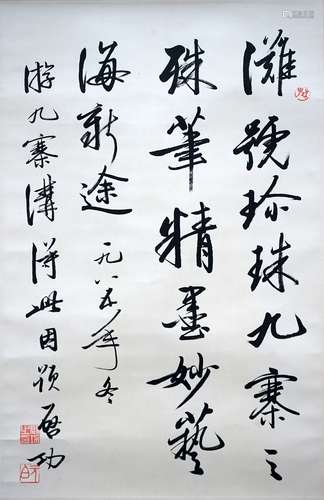 灘號珍珠九寨之
殊筆精墨妙藝
海新途 一九八年冬
游九寨溝得此因題 啟功